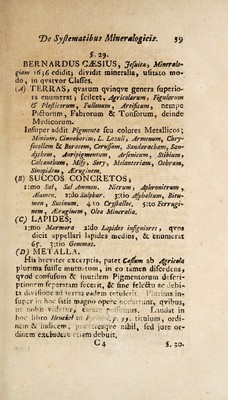 De Systematibus Mineralogicis. 39
§. 29.
BERNARDUS CÆSIUS, Jesuita, Mineralo-
giam 1636 edidit; dividit mineralia, usitato mo-
do, in qvatvor Classes.
(A) TERRAS; qvarum qvinqve genera superio-
ra enumerat; scilcet, Agricularum, Figulorum
& Plasticorum, Fullonum, Artificum, nempe
Pictorum, Fabrorum & Tonsorum, deinde
Medicorum.
Insuper addit Pigmenta seu colores Metallicos;
Minium, Cinnabarim, L. Lazuli, Armenum, Chry-
socollam & Boracem, Cerussam, Sandaracham, San-
dychem, Auripigmentum, Arsenicum, Stibium,
Calcantbum, Misy, Sory, Melanteriam, Ochram,
Sinopidem, Æruginem.
(B) SUCCOS CONCRETOS;
1:mo Sal, Sal Ammon. Nitrum, Aphronitrum,
Alumen. 2:do Sulphur. 3:tio Asphaltum, Bitu-
men, Succinum. 4:to Crystallos. 5:to Ferrugi-
nem, Æruginem, Olea Mineralia.
(C) LAPIDES;
1:mo Marmora 2:do Lapides insigniores, qvos
dicit appellari lapides medios, & enumerat
65. 3:tio Gemmas.
(D) METALLA.
His breviter excerptis, patet Cæsium ab Agricola
plurima fuisse mutuatum, in eo tamen discedens,
qvod confusam & inutilem Pigmentorum descri-
ptionem separatam fecerit, & sine selectu ac debi-
ta divisione ad terras eadem retulerit. Plurima in-
super in hoc satis magno opere occurrunt, qvibus,
ut nobis videtur, carere possumus. Laudat in
hoc libro Henckel in p. 55. titulum, ordi-
nem & indicem, prætereaqve nihil, sed jure or-
dinem excludere etiam debuit.
C4 §. 30.